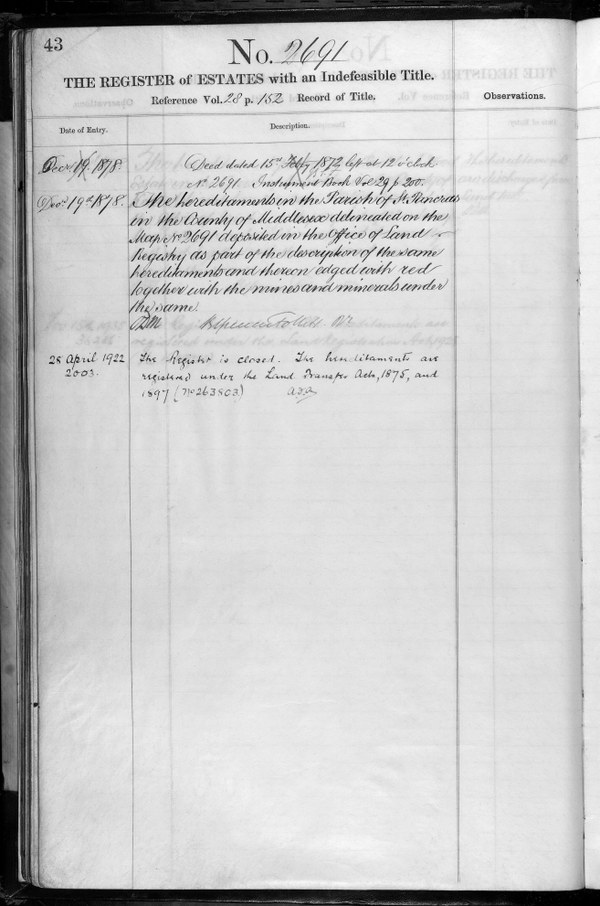 43
No. 2691
THE REGISTER of ESTATES with an Indefeasible Title.
Reference Vol. 28 p. 182 Record of Title.
Observations.
Date of Entry.
Description.
Decr 19. 1878.
Deed dated 15th 1872 left at 12 o'clock
No. 2691 Instrument Book Vol 29 p 200.
Decr. 19th 1878.
The hereditaments in the Parish of St. Pancras
in the County of Middlesex delineated on the
Map No 2691 deposited in the Office of Land
Registry as part of the description of the same
hereditaments and thereon edged with red
together with the mines and minerals under
the same.
28 April 1922
2003.
The Register is closed. The hereditaments are
registered under the Land Transfer Acts, 1875, and
1897 (No 263803)